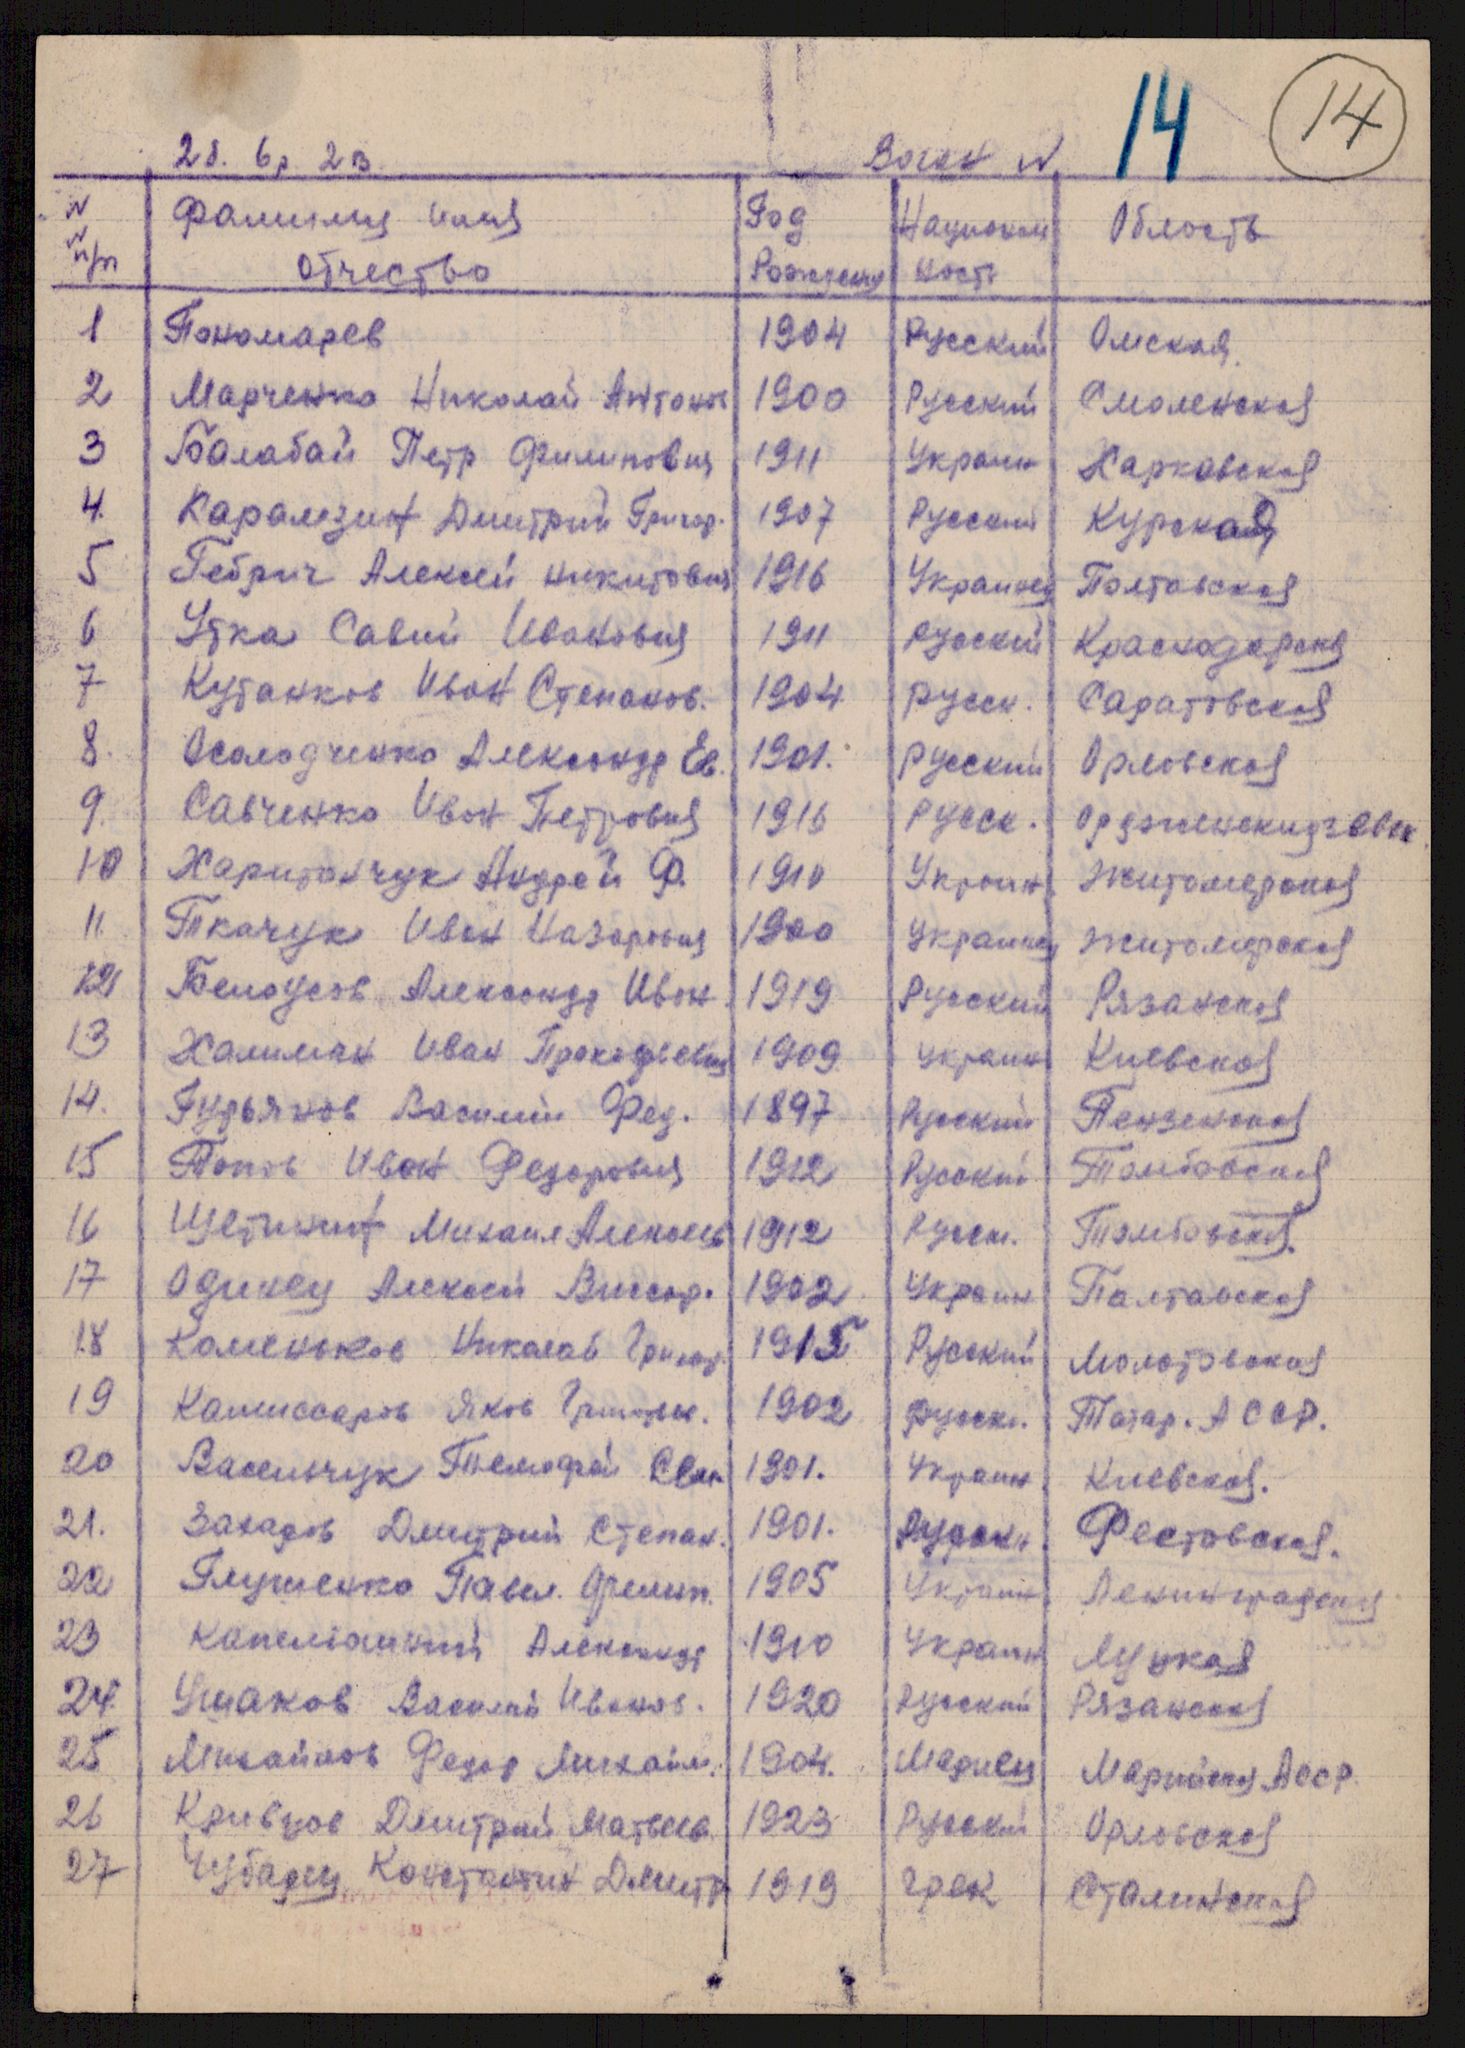 14 14
28. бр 2 в. Вагон N
N N п/п Фамилия имя отчество Год Рождения Национальность Область
1 Пономарев 1904 Русский Омская
2 Марченко Николай Антонов 1900 Русский Смоленская
3 Балабай Петр Филипович 1911 Украин Харковская
4. Карамзин Дмитрий Григор. 1907 Русский Курская
5 Гебрич Алексей никитович 1916 Украинец Полтавская
6 Утка Савий Иванович 1911 Русский Краснодарска
7 Кутанков Иван Степанов. 1904 русск. Саратовская
8. Осолодченко Александр Ев. 1901. Русский Орловская
9. Савченко Иван Петрович 1916 Русск. Орджоненскидзевск
10 Харитончук Андрей Ф. 1910 Украин. Житомерская
11. Ткачук Иван Назарович 1900 Украинец Житомирская
12 Белоусов Александр Иван. 1919 Русский Рязанская
13 Халиман Иван Прокофьевич 1909 Украин Киевская
14. Гурьянов Василий Фед. 1897 Русский Пензенская
15 Попов Иван Федорович 1912 Русский Тамбовская
16 Щетинин Михаил Алексеев 1912 Русск. Тамбовская.
17 Одинец Алексей Виктор. 1902 Украин Палтавская
18 Каменьков Николай Григор. 1915 Русский Молотовская
19 Камиссаров Яков Григорьев. 1902 Русск. Татар. АССР.
20 Васельчук Темофей Сван. 1901. Украин. Киевская.
21. Захаров Дмитрий Степан. 1901. Русск. Фестовская.
22 Глущенко Павел. Филип. 1905 Украин Ленинградская
23 Капелюшный Александр 1910 Украин Луцкая
24. Ушаков Василий Иванов. 1920 Русский Рязанская
25 Михайлов Федор Михайл. 1904. Мариец Марийская АССР
26 Кривцов Дмитрий Матвеев. 1923 Русский Орловская
27 Чубарец Константин Дмитр 1919 грек Сталинская